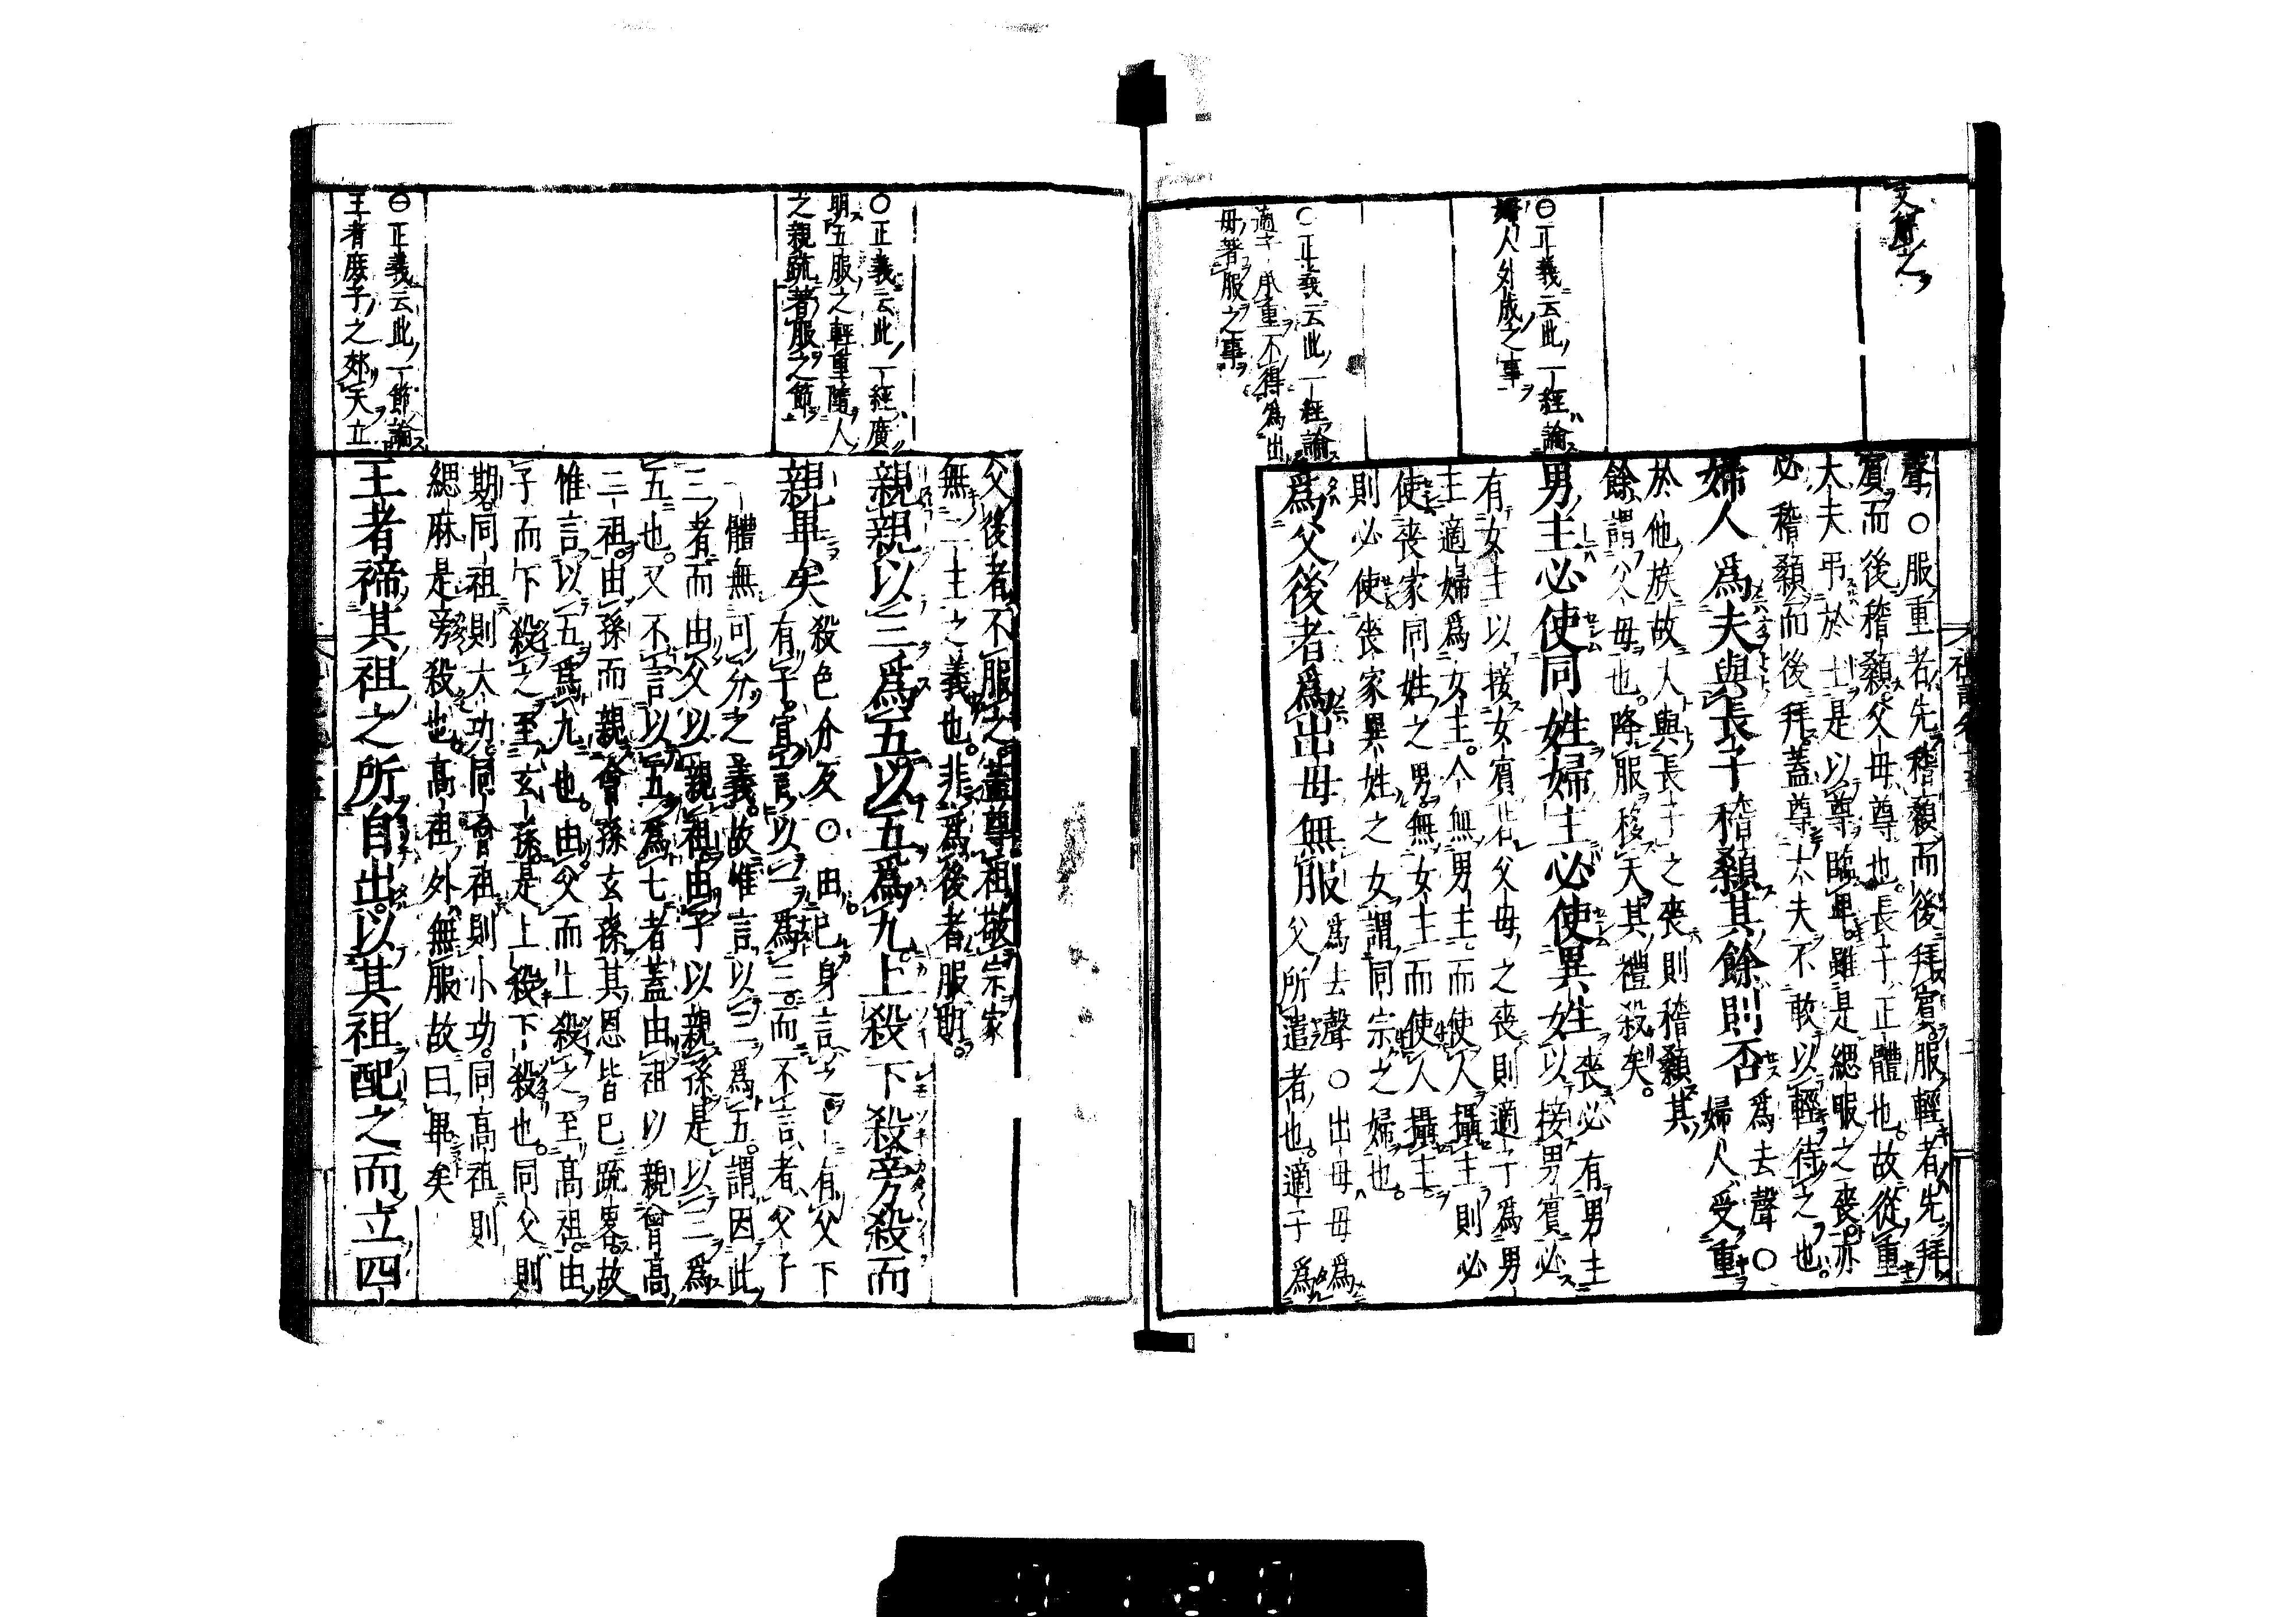 聲○服重者先稽顙而後拜賓服輕者先拜
賓而後稽顙父母尊也長子正體也故從重
大夫弔於士是以尊臨卑雖是緦服之喪亦
必稽顙而後拜蓋尊大夫不敢以輕待之也
婦人爲夫與長子稽顙其餘則否爲去聲○
婦人受重
於他族故人與長子之喪則稽顙其
餘謂父母也降服移天其禮殺矣
○正義云此一經論
婦人外成之事
男主必使同姓婦主必使異姓喪必有男主
以接男賓必
有女主以接女賓若父母之喪則適子爲男
主適婦爲女主今無男主而使人攝主則必
使喪家同姓之男無女主而使人攝主
則必使喪家異姓之女謂同宗之婦也
○正義云此一經論
適子承重不得爲出
母著服之事
爲父後者爲出母無服爲去聲○出母母爲
父所遣者也適子爲
父後者不服之蓋尊祖敬宗家
無二主之義也非爲後者服期
○正義云此一經廣
明五服之輕重隨人
之親疏著服之節
親親以三爲五以五爲九上殺下殺旁殺而
親畢矣殺色介反○由已身言之上有父下
有子宜言以一爲三而不言者父子
一體無可分之義故惟言以三爲五謂因此
三者而由父以親祖由子以親孫是以三爲
五也又不言以五爲七者蓋由祖以親曾高
二祖由孫而親曾孫玄孫其恩皆已疏畧故
惟言以五爲九也由父而上殺之至高祖由
子而下殺之至玄孫是上殺下殺也同父則
期同祖則大功同曾祖則小功同高祖則
緦麻是旁殺也高祖外無服故曰畢矣
○正義云此一節論
王者庶子之郊天立
王者禘其祖之所自出以其祖配之而立四